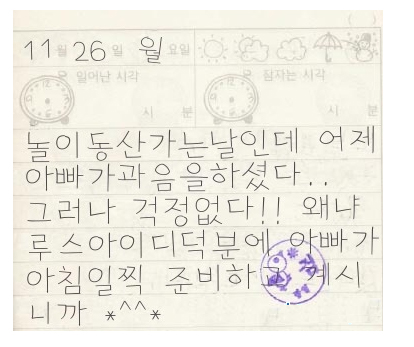 11월 26일 월요일
일어난 시각 잠자는 시각
시 분 시 분
놀이동산가는날인데 어제
아빠가과음을하셨다..
그러나 걱정없다!! 왜냐
루스아이디덕분에 아빠가
아침일찍 준비하고 계시
니까 *^^*